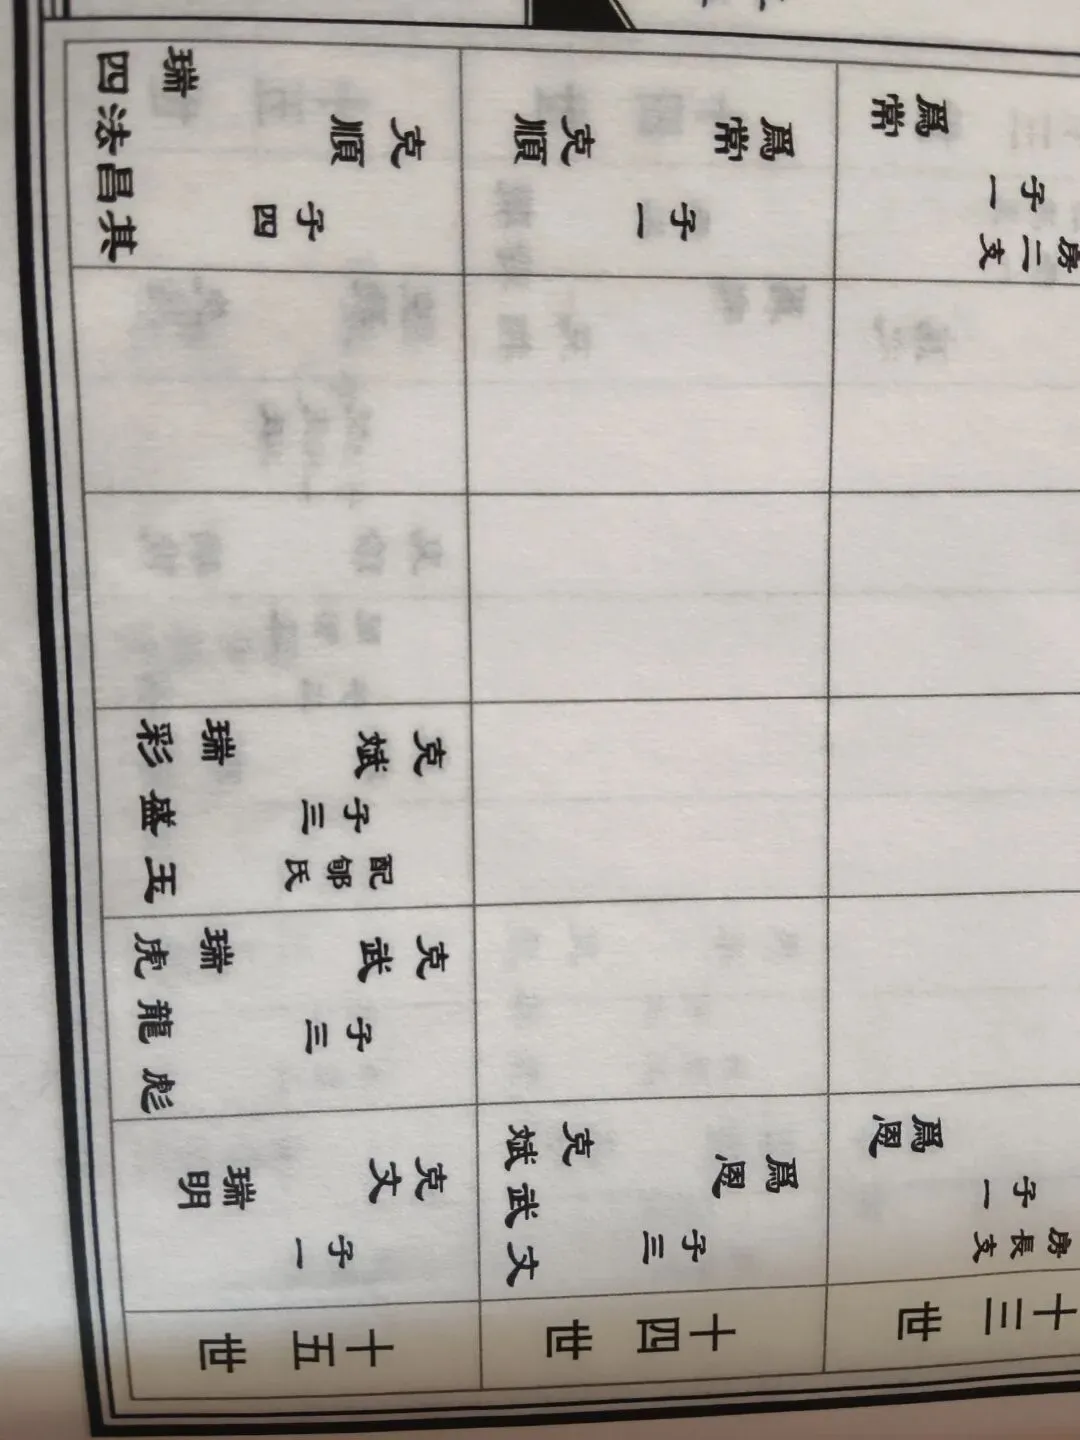 十三世
房長支
子一
爲恩
房二支
子一
爲常
十四世
爲恩
子三
克
文武斌
爲常
子一
克順
十五世
克文
子一
瑞明
克武
子三
瑞
彪龍虎
克斌
配郇氏
子三
瑞
玉盛彩
克順
子四
瑞
其昌法四